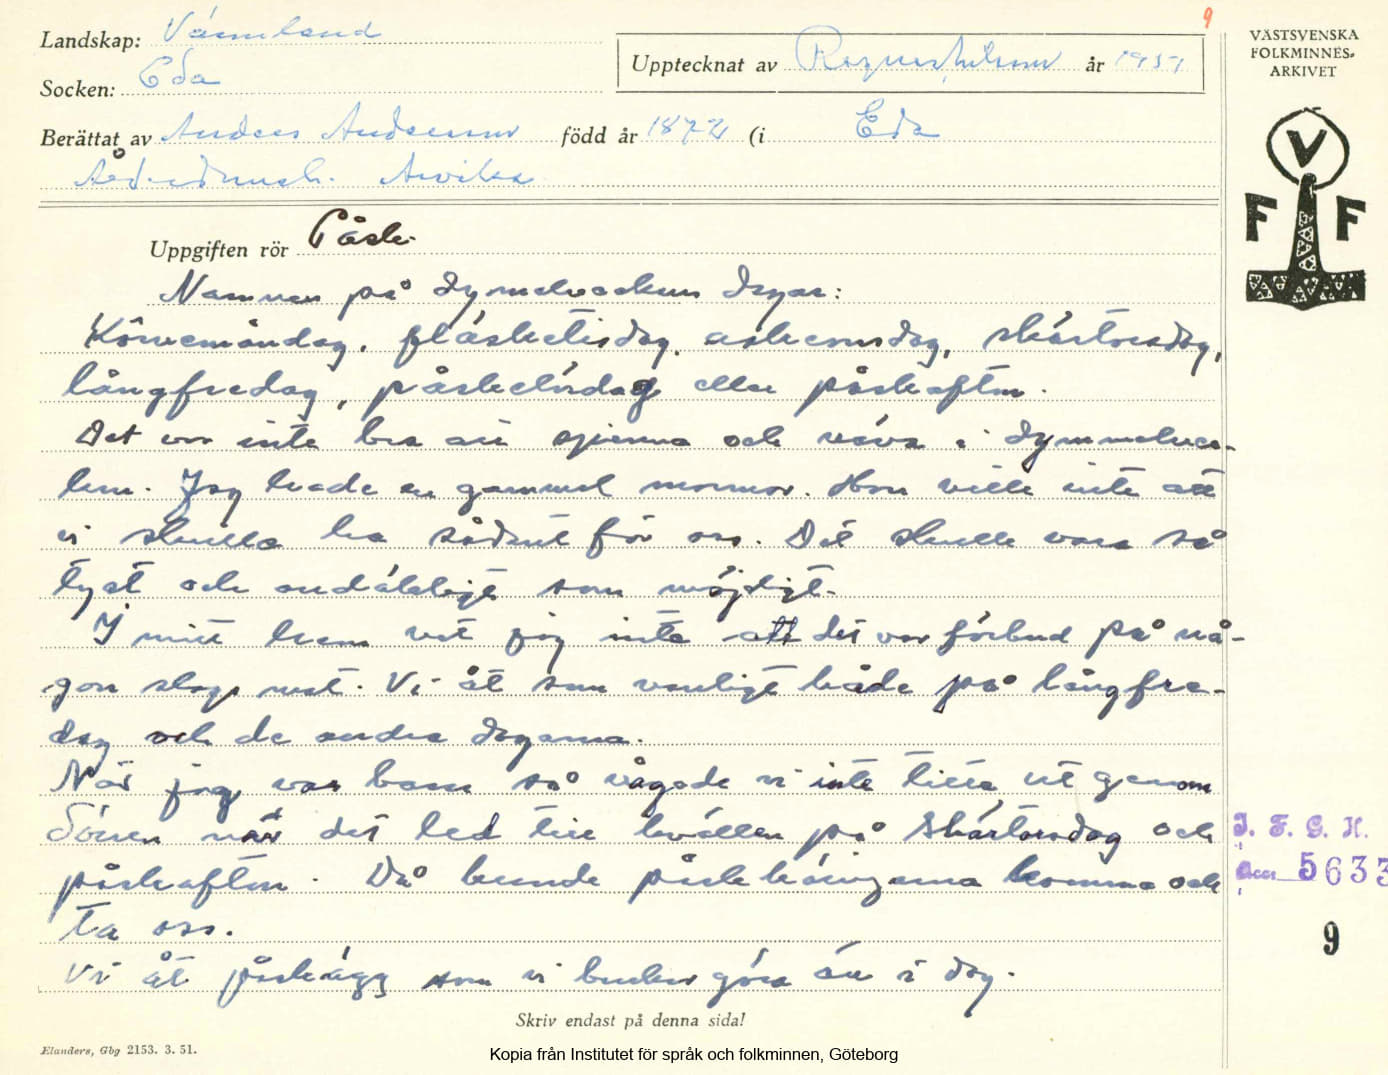 9
Landskap: Värmland
Socken: Eda
Upptecknat av Ragnar Nilsson år 1957
VÄSTSVENSKA
FOLKMINNES-
ARKIVET
Berättat av Anders Andersson född år 1872 (i Eda
Arvika
V
F F
Uppgiften rör Påsk.
Namnen på dymelveckans dagar:
Körvemåndag, fläsketisdag, askeonsdag, skärtorsdag,
långfredag, påskelördag eller påskafton.
Det var inte bra att spinna och väva i dymmelvec-
kan. Jag hade en gammal mormor. Hon ville inte att
vi skulle ha sådant för oss. Det skulle vara så
tyst och andäktigt som möjligt.
I mitt hem vet jag inte att det var förbud på nå-
gon slags mat. Vi åt som vanligt både på långfre-
dag och de andra dagarna.
När jag var barn så vågade vi inte titta ut genom
dörren när det led till kvällen på skärtorsdag och
påskafton. Då kunde påskkäringarna komma och
ta oss.
Vi åt påskägg som vi brukar göra än i dag.
J. F. G. H.
Acc. 5633
9
Skriv endast på denna sida!
Elanders, Gbg 2153. 3. 51.
Kopia från Institutet för språk och folkminnen, Göteborg